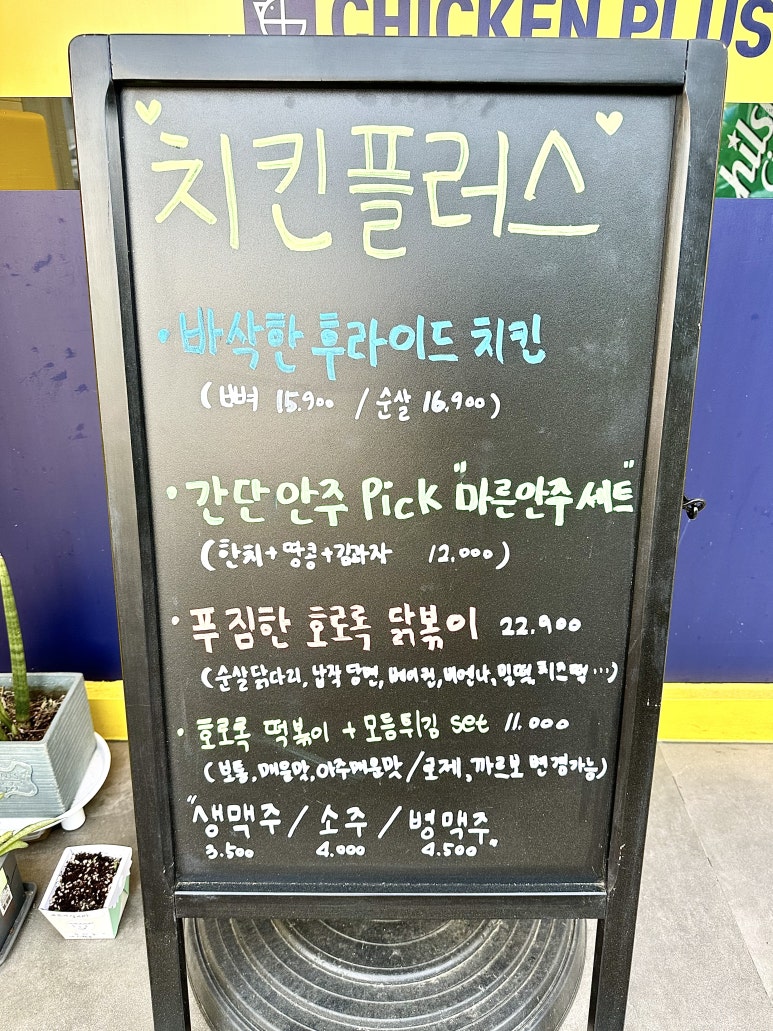 CHICKEN PLUS
치킨플러스
• 바삭한 후라이드 치킨
(뼈 15.900 / 순살 16.900)
• 간단안주 Pick "마른안주 세트"
(한치+땅콩+김과자 12.000)
• 푸짐한 호로록 닭볶이 22.900
(순살닭다리, 납작당면, 베이컨, 비엔나, 밀떡, 치즈떡...)
• 호로록 떡볶이 + 모듬튀김 set 11.000
(보통, 매운맛, 아주매운맛 / 로제, 까르보 변경가능)
"생맥주 / 소주 / 병맥주"
3.500 4.000 4.500